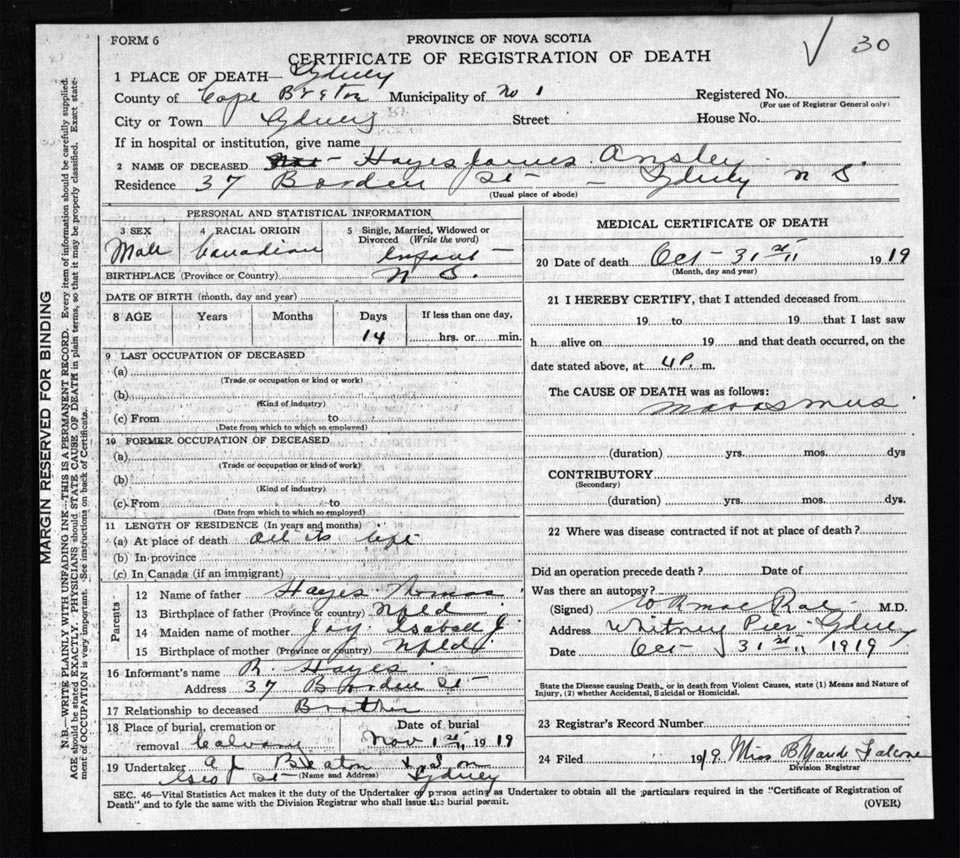 FORM 6
PROVINCE OF NOVA SCOTIA
CERTIFICATE OF REGISTRATION OF DEATH
30
1 PLACE OF DEATH— Sydney
County of Cape Breton Municipality of No 1 Registered No.
(For use of Registrar General only)
City or Town Sydney Street House No.
If in hospital or institution, give name
2 NAME OF DECEASED Hayes James Ansley
Residence 37 Borden St — Sydney N S
(Usual place of abode)
PERSONAL AND STATISTICAL INFORMATION
3 SEX 4 RACIAL ORIGIN 5 Single, Married, Widowed or Divorced (Write the word)
Male Canadian Infant
BIRTHPLACE (Province or Country) N S.
DATE OF BIRTH (month, day and year)
8 AGE Years Months Days If less than one day,
14 hrs. or min.
9 LAST OCCUPATION OF DECEASED
(a)
(Trade or occupation or kind or work)
(b)
(Kind of industry)
(c) From to
(Date from which to which so employed)
10 FORMER OCCUPATION OF DECEASED
(a)
(Trade or occupation or kind of work)
(b)
(Kind of industry)
(c) From to
(Date from which to which so employed)
11 LENGTH OF RESIDENCE (In years and months)
(a) At place of death all its life
(b) In province
(c) In Canada (if an immigrant)
Parents
12 Name of father Hayes Thomas
13 Birthplace of father (Province or country) Nfld
14 Maiden name of mother Joy Isabell J.
15 Birthplace of mother (Province or country) Nfld
16 Informant's name R. Hayes
Address 37 Borden St
17 Relationship to deceased Brother
18 Place of burial, cremation or removal Calvary Date of burial Nov 1st 1919
19 Undertaker A J Beaton & Son
(Name and Address)
Geo St Sydney
MEDICAL CERTIFICATE OF DEATH
20 Date of death Oct - 31st 1919
(Month, day and year)
21 I HEREBY CERTIFY, that I attended deceased from
19 to 19 that I last saw
h alive on 19 and that death occurred, on the
date stated above, at 4 P. m.
The CAUSE OF DEATH was as follows:
Marasmus
(duration) yrs. mos. dys
CONTRIBUTORY
(Secondary)
(duration) yrs. mos. dys.
22 Where was disease contracted if not at place of death?
Did an operation precede death? Date of
Was there an autopsy?
(Signed) M.D.
Address Whitney Pier - Sydney
Date Oct 31st 1919
State the Disease causing Death, or in death from Violent Causes, state (1) Means and Nature of
Injury, (2) whether Accidental, Suicidal or Homicidal.
23 Registrar's Record Number
24 Filed 1919. Miss B Maude Falconer
Division Registrar
SEC. 46—Vital Statistics Act makes it the duty of the Undertaker or person acting as Undertaker to obtain all the particulars required in the "Certificate of Registration of
Death" and to fyle the same with the Division Registrar who shall issue the burial permit.
(OVER)
MARGIN RESERVED FOR BINDING
N.B.—WRITE PLAINLY WITH UNFADING INK—THIS IS A PERMANENT RECORD. Every item of information should be carefully supplied.
AGE should be stated EXACTLY. PHYSICIANS should STATE CAUSE OF DEATH in plain terms, so that it may be properly classified. Exact state-
ment of OCCUPATION is very important. See instructions on back of Certificate.